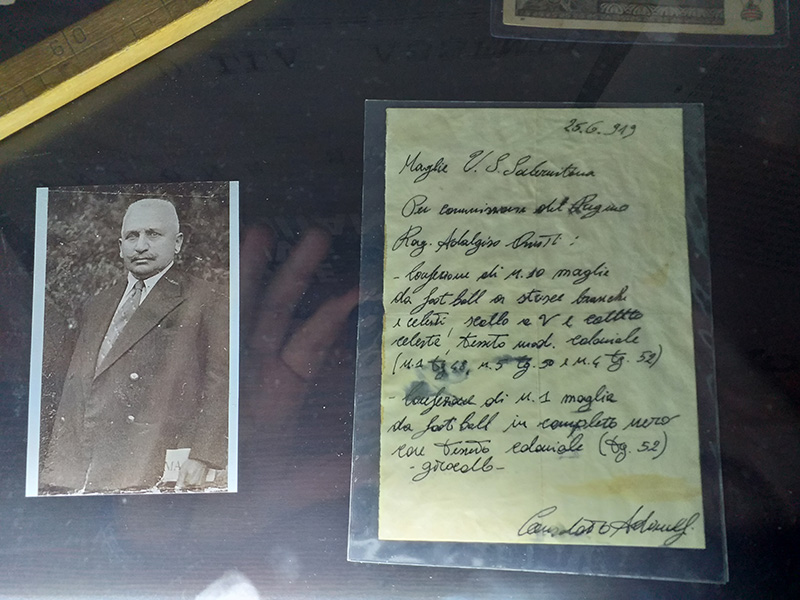 60
MA
25.6.919
Maglie U.S. Salernitana
Per commissione del Regino
Rag. Adalgiso Onetti:
- Confezione di N. 10 maglie
da foot ball a strisce bianchi
e celesti scollo a V e colletto
celeste, tessuto mod. coloniale
(N. 1 tg 48, N. 5 tg. 50 e N. 4 tg. 52)
- Confezione di N. 1 maglia
da foot ball in completo nero
con tessuto coloniale (tg. 52)
- girocollo -